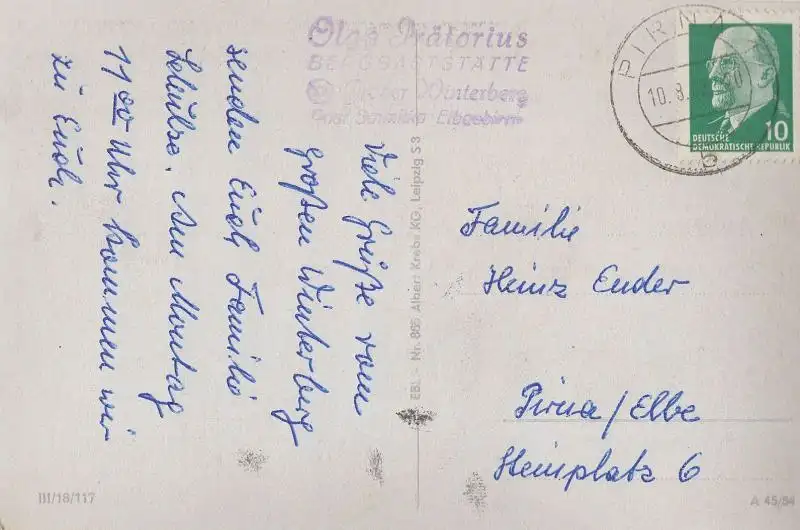 Olga Prätorius
BERGGASTSTÄTTE
Großer Winterberg
Post Schmilka Elbgebirge
Viele Grüße vom
großen Winterberg
senden Euch Familie
Schulze. Am Montag
11 00 Uhr kommen wir
zu Euch.
EBL - Nr. 865 Albert Krebs KG, Leipzig S 3
PIRNA
10. 8.
b
DEUTSCHE
DEMOKRATISCHE REPUBLIK
10
Familie
Heinz Ender
Pirna/Elbe
Heinplatz 6
III/18/117
A 45/84